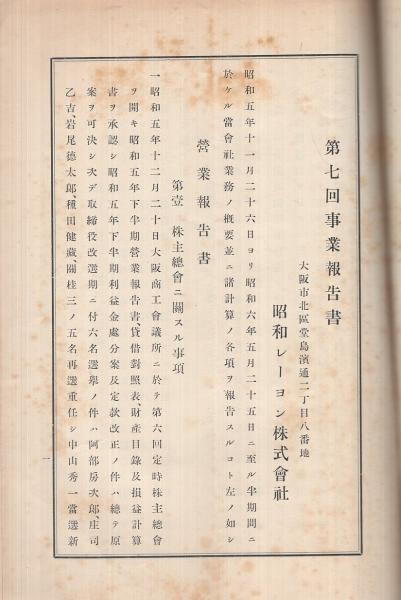 第七回事業報告書
大阪市北區堂島濱通二丁目八番地
昭和レーヨン株式會社
昭和五年十一月二十六日ヨリ昭和六年五月二十五日ニ至ル半期間ニ
於ケル當會社業務ノ概要並ニ諸計算ノ各項ヲ報告スルコト左ノ如シ
營業報告書
第壹 株主總會ニ關スル事項
一昭和五年十二月二十日大阪商工會議所ニ於テ第六回定時株主總會
ヲ開キ昭和五年下半期營業報告書、貸借對照表、財產目錄及損益計算
書ヲ承認シ昭和五年下半期利益金處分案及定款改正ノ件ハ總テ原
案ヲ可決シ次デ取締役改選期ニ付六名選擧ノ件ハ阿部房次郎、庄司
乙吉、岩尾德太郎、種田健藏、關桂三ノ五名再選重任シ中山秀一當選新
一